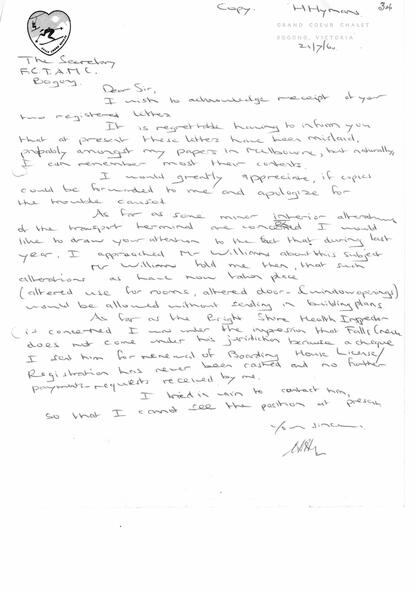 Copy. HHymans 34
GRAND COEUR CHALET
BOGONG, VICTORIA
21/7/6
The Secretary
F.C.T.A.M.C.
Bogong.
Dear Sir,
I wish to acknowledge receipt of your
two registered letters
It is regrettable having to inform you
that at present these letters have been mislaid,
probably amongst my papers in Melbourne, but naturally
I can remember most their contents.
I would greatly appreciate, if copies
could be forwarded to me and apologize for
the trouble caused
As far as some minor interior alterations
of the transport terminal are concerned I would
like to draw your attention to the fact that during last
year, I approached Mr Williams about this subject
Mr Williams told me then, that such
alterations as have now taken place
(altered use for rooms, altered door- & window openings)
would be allowed without sending in building plans
As far as the Bright Shire Health Inspector
is concerned I was under the impression that Falls Creek
does not come under his juridiction because a cheque
I sent him for renewal of Boarding House License/
Registration has never been cashed and no further
payments-requests received by me.
I tried in vain to contact him,
so that I cannot see the position at present
Yours sincer